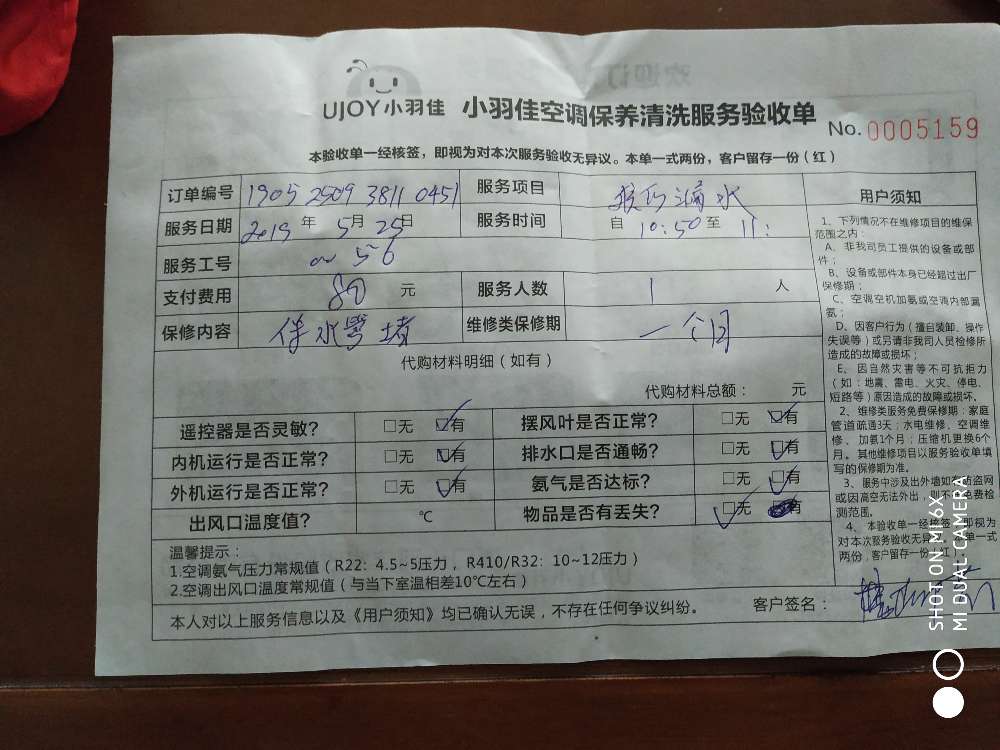 欢迎订
UJOY小羽佳 小羽佳空调保养清洗服务验收单
No. 0005159
本验收单一经核签，即视为对本次服务验收无异议。本单一式两份，客户留存一份（红）
订单编号 1905 2509 3811 0451 服务项目 滴水
服务日期 2019 年 5月 25日 服务时间 自 10:50 至 11:
服务工号 56
支付费用 80 元 服务人数 1 人
保修内容 水 堵 维修类保修期 一个月
代购材料明细（如有）
代购材料总额： 元
遥控器是否灵敏? □无 □有 摆风叶是否正常? □无 □有
内机运行是否正常? □无 □有 排水口是否通畅? □无 □有
外机运行是否正常? □无 □有 氨气是否达标? □无 □有
出风口温度值? ℃ 物品是否有丢失? □无 □有
温馨提示：
1.空调氨气压力常规值（R22: 4.5~5压力，R410/R32: 10~12压力）
2.空调出风口温度常规值（与当下室温相差10℃左右）
本人对以上服务信息以及《用户须知》均已确认无误，不存在任何争议纠纷。 客户签名：
用户须知
1、下列情况不在维修项目的维保
范围之内：
A、非我司员工提供的设备或部
件；
B、设备或部件本身已经超过出厂
保修期；
C、空调空机加氨或空调内部漏
氨；
D、因客户行为（擅自装卸、操作
失误等）或另请非我司人员检修所
造成的故障或损坏；
E、因自然灾害等不可抗拒力
（如：地震、雷电、火灾、停电、
短路等）原因造成的故障或损坏。
2、维修类服务免费保修期：家庭
管道疏通3天；水电维修、空调维
修、加氨1个月；压缩机更换6个
月。其他维修项目以服务验收单填
写的保修期为准。
3、服务中涉及出外墙如 防盗网
或因高空无法外出，则不 免费检
测范围。
4、本验收单一经核签，即视为
对本次服务验收无异 。本单一式
两份，客户留存一份（红）。
SHOT ON MI 6X
MI DUAL CAMERA